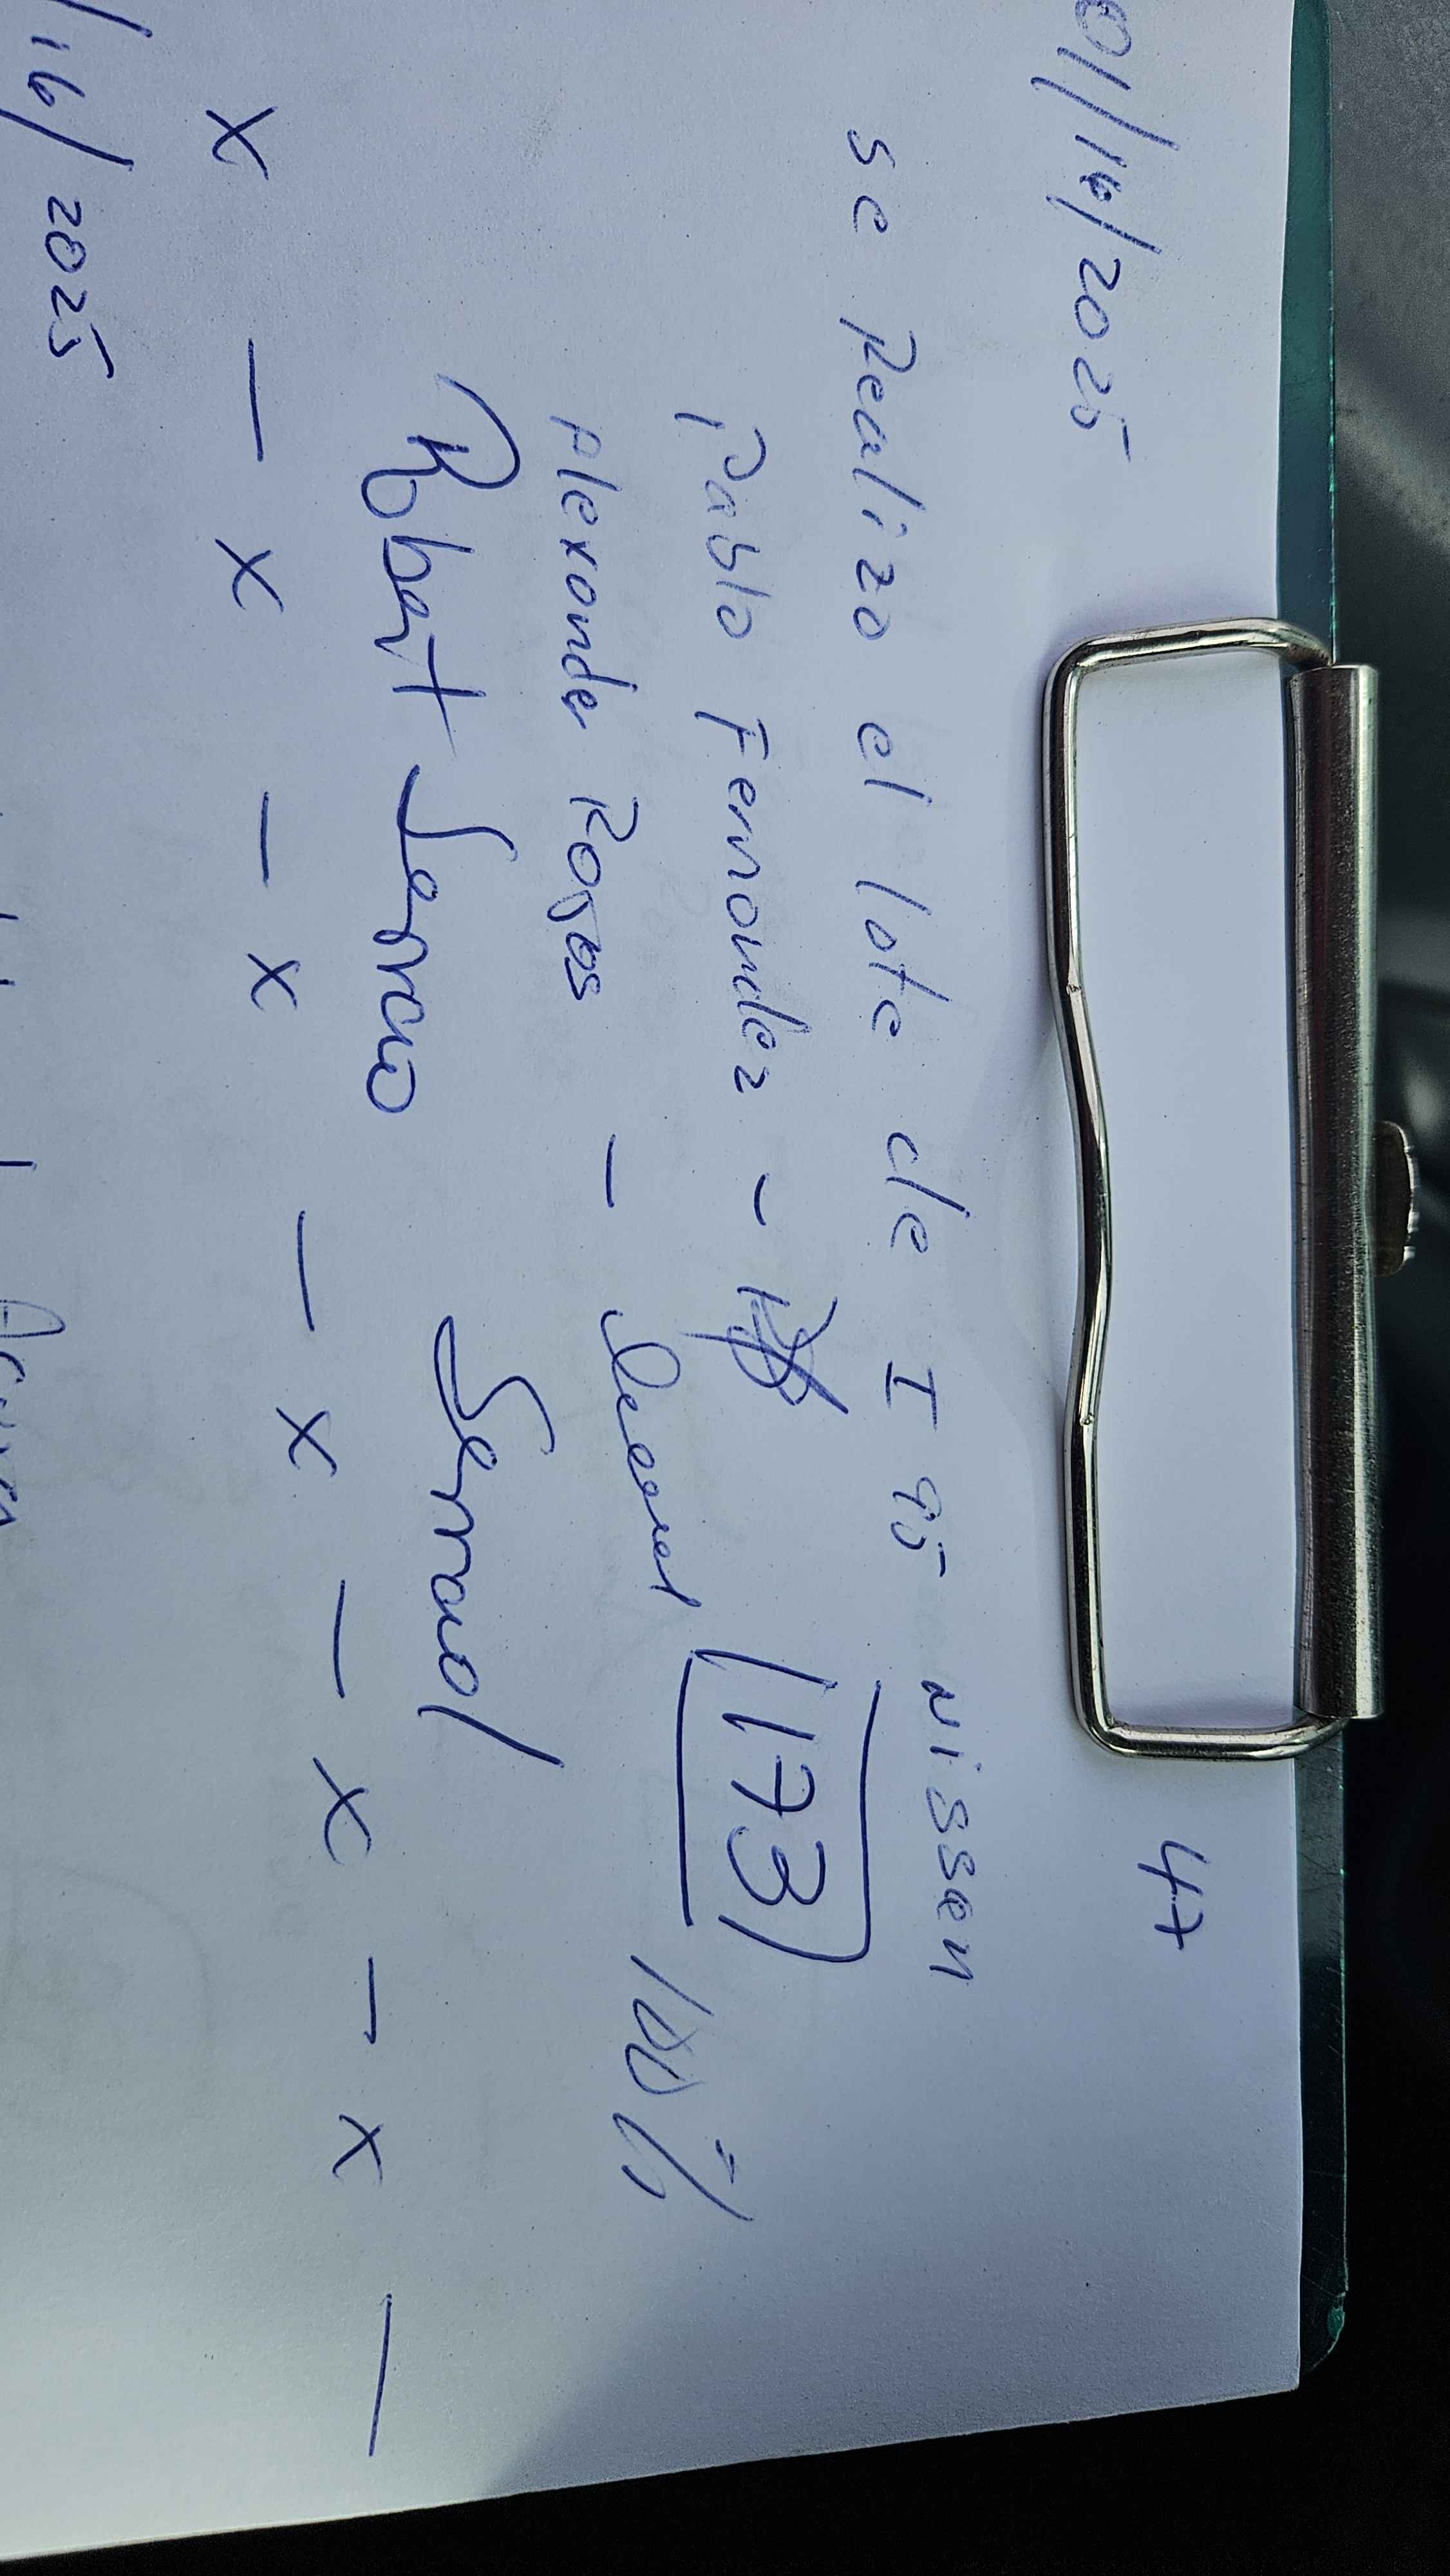 01/16/2025 47
se Realizo el lote de I 95 Nissan
Pablo Fernondez -
Alexonder Rojas - 173 100%
Robert Serrao Serraol
x — x — x — x — x — x —
/16/2025